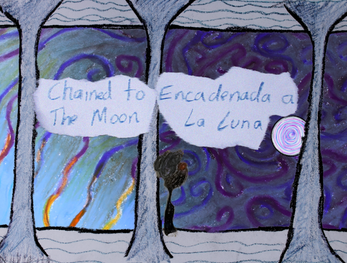 Chained to
The Moon
Encadenada a
La Luna